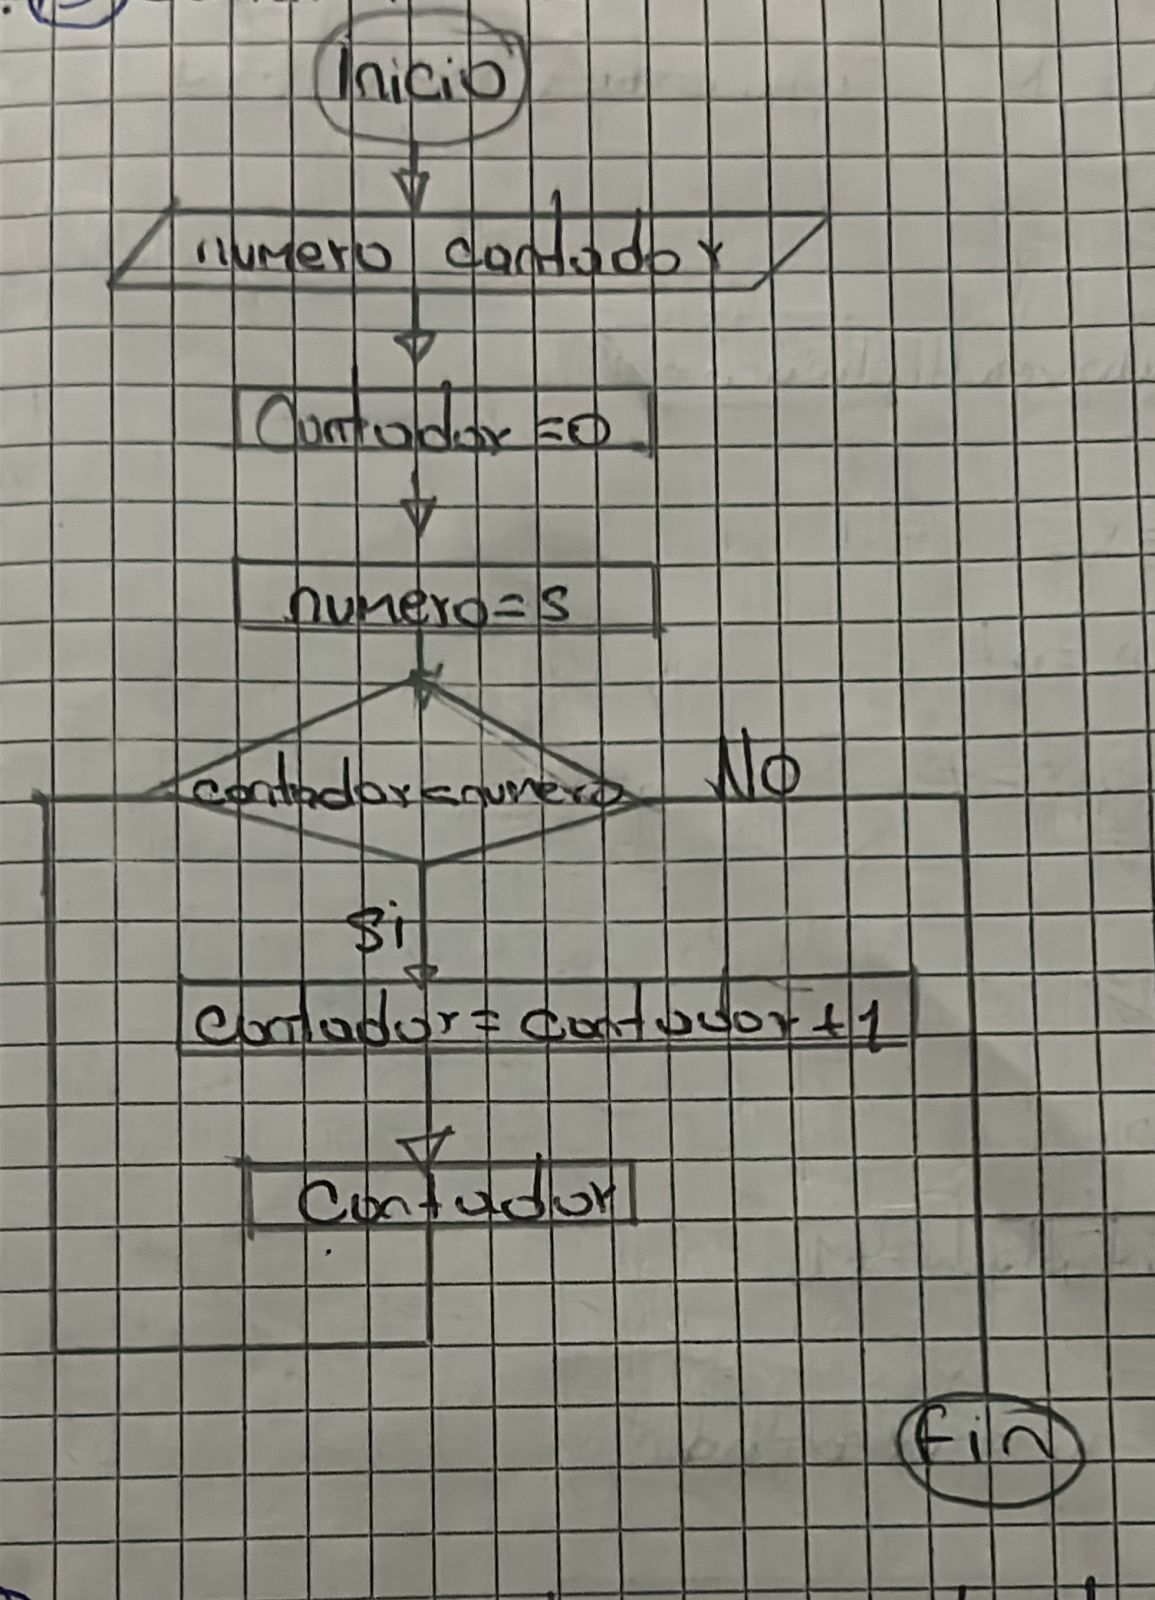 Inicio
numero contador
Contador = 0
numero = 5
contador <= numero
NO
Si
Contador = contador + 1
Contador
Fin